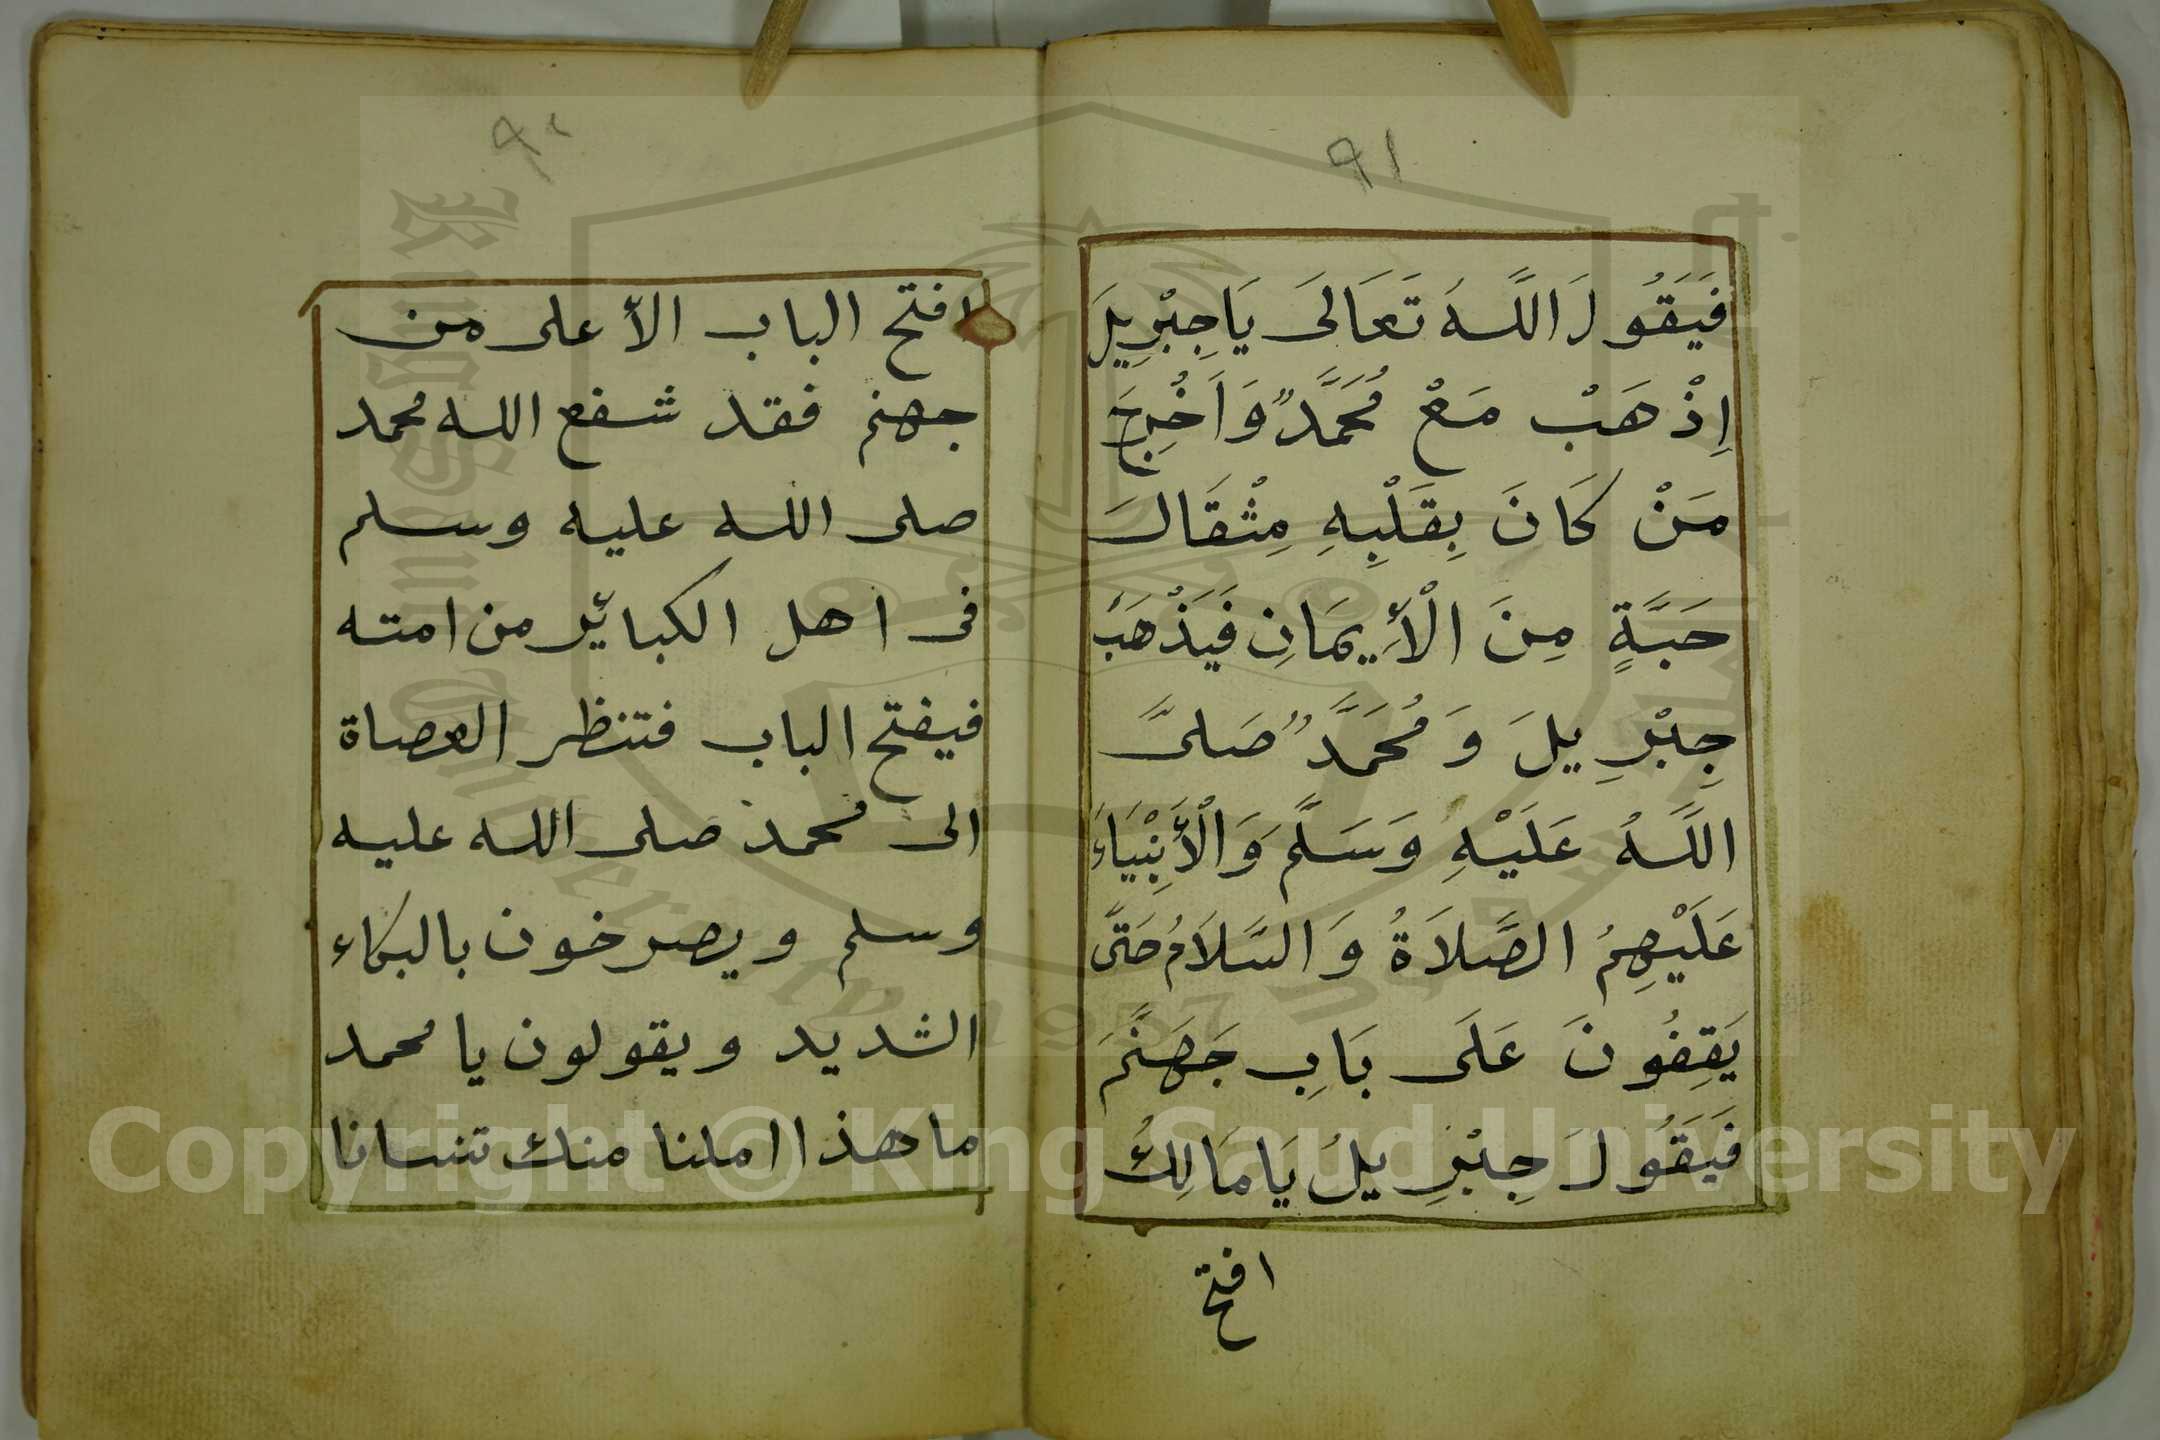 ٩١
فَيَقُولَ اللَّهَ تَعَالَى يَاجِبْرِيلَ
اِذْهَبْ مَعْ مُحَمَّدٌ وَاَخْرِجَ
مَنْ كَانَ بِقَلْبِهِ مِثْقَالَ
حَبَّةٍ مِنَ الْأِيمَانِ فَيَذْهَبْ
جِبْرِيلَ وَمُحَمَّدٌ صَلَّى
اللَّهُ عَلَيْهِ وَسَلَّمَ وَالْأَنْبِيَاءَ
عَلَيْهِمُ الصَّلَاةُ وَالسَّلَامُ حَتَّى
يَقِفُونَ عَلَى بَابِ جَهَنَّمَ
فَيَقُولَ جِبْرِيلُ يَامَالِكُ
افتح
٩٢
افتح الباب الأعلى من
جهنم فقد شفع الله محمد
صلى الله عليه وسلم
فى اهل الكبائر من امته
فيفتح الباب فتنظر العصاة
الى محمد صلى الله عليه
وسلم ويصرخون بالبكاء
الشديد ويقولون يا محمد
ما هذا املنا منك تنسانا
King Saud University
1957
Copyright © King Saud University